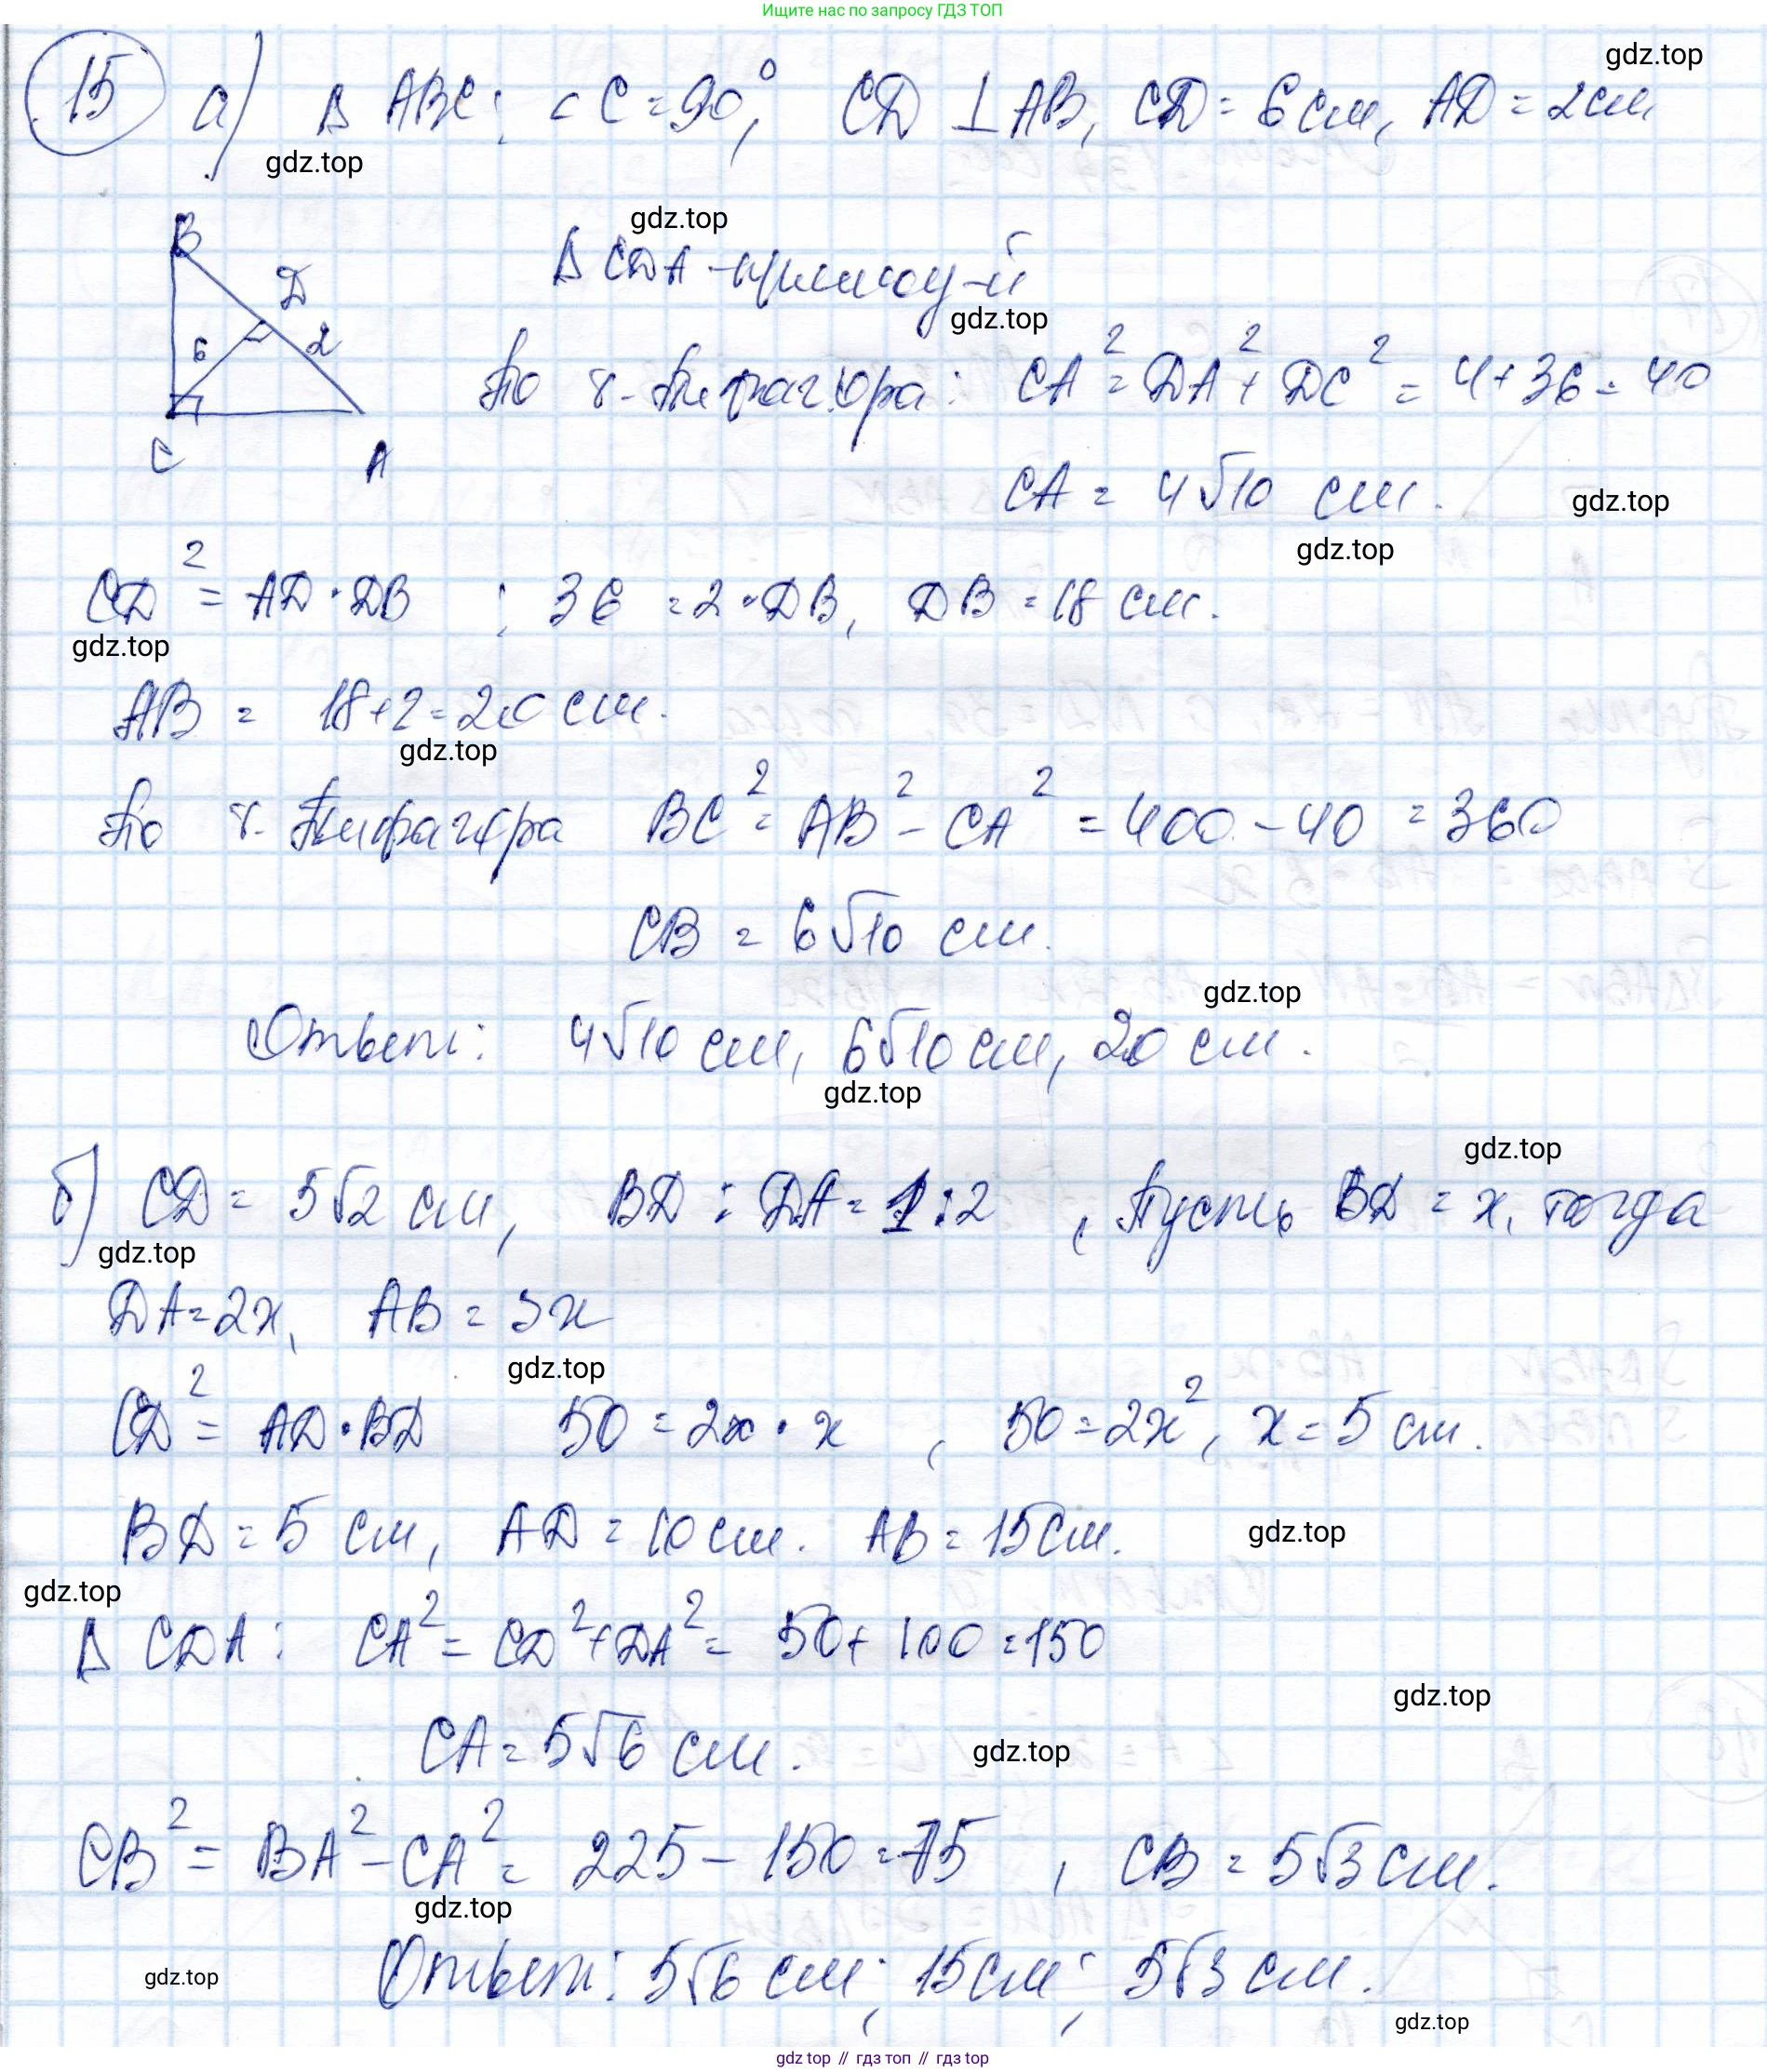 Ищите нас по запросу ГДЗ ТОП
gdz.top
15 а) Δ ABC; ∠C = 90°, CD ⊥ AB, CD = 6 см, AD = 2 см
gdz.top
gdz.top
B
D
6
2
C
A
Δ CDA - прямоу-й
gdz.top
По т. Пифагора: CA² = DA² + DC² = 4 + 36 = 40
CA = 4√10 см.
gdz.top
gdz.top
CD² = AD · DB ; 36 = 2 · DB, DB = 18 см.
gdz.top
AB = 18 + 2 = 20 см.
gdz.top
По т. Пифагора BC² = AB² - CA² = 400 - 40 = 360
CB = 6√10 см.
gdz.top
Ответ: 4√10 см, 6√10 см, 20 см.
gdz.top
gdz.top
б) CD = 5√2 см, BD : DA = 1 : 2 , Пусть BD = x, тогда
gdz.top
DA = 2x, AB = 3x
gdz.top
CD² = AD · BD 50 = 2x · x , 50 = 2x², x = 5 см.
BD = 5 см, AD = 10 см. AB = 15 см.
gdz.top
gdz.top
Δ CDA: CA² = CD² + DA² = 50 + 100 = 150
gdz.top
CA = 5√6 см.
gdz.top
CB² = BA² - CA² = 225 - 150 = 75 , CB = 5√3 см.
gdz.top
Ответ: 5√6 см; 15 см; 5√3 см.
gdz.top
gdz.top
gdz top // гдз топ // gdz top